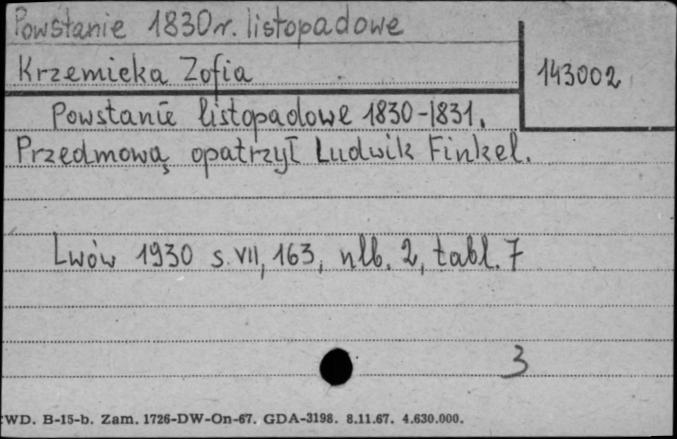 Powstanie 1830 r. listopadowe
Krzemicka Zofia
143002
Powstanie listopadowe 1830-1831.
Przedmową opatrzył Ludwik Finkel.
Lwów 1930 s. VII, 163, nlb. 2, tabl. 7
3
WD. B-15-b. Zam. 1726-DW-On-67. GDA-3198. 8.11.67. 4.630.000.